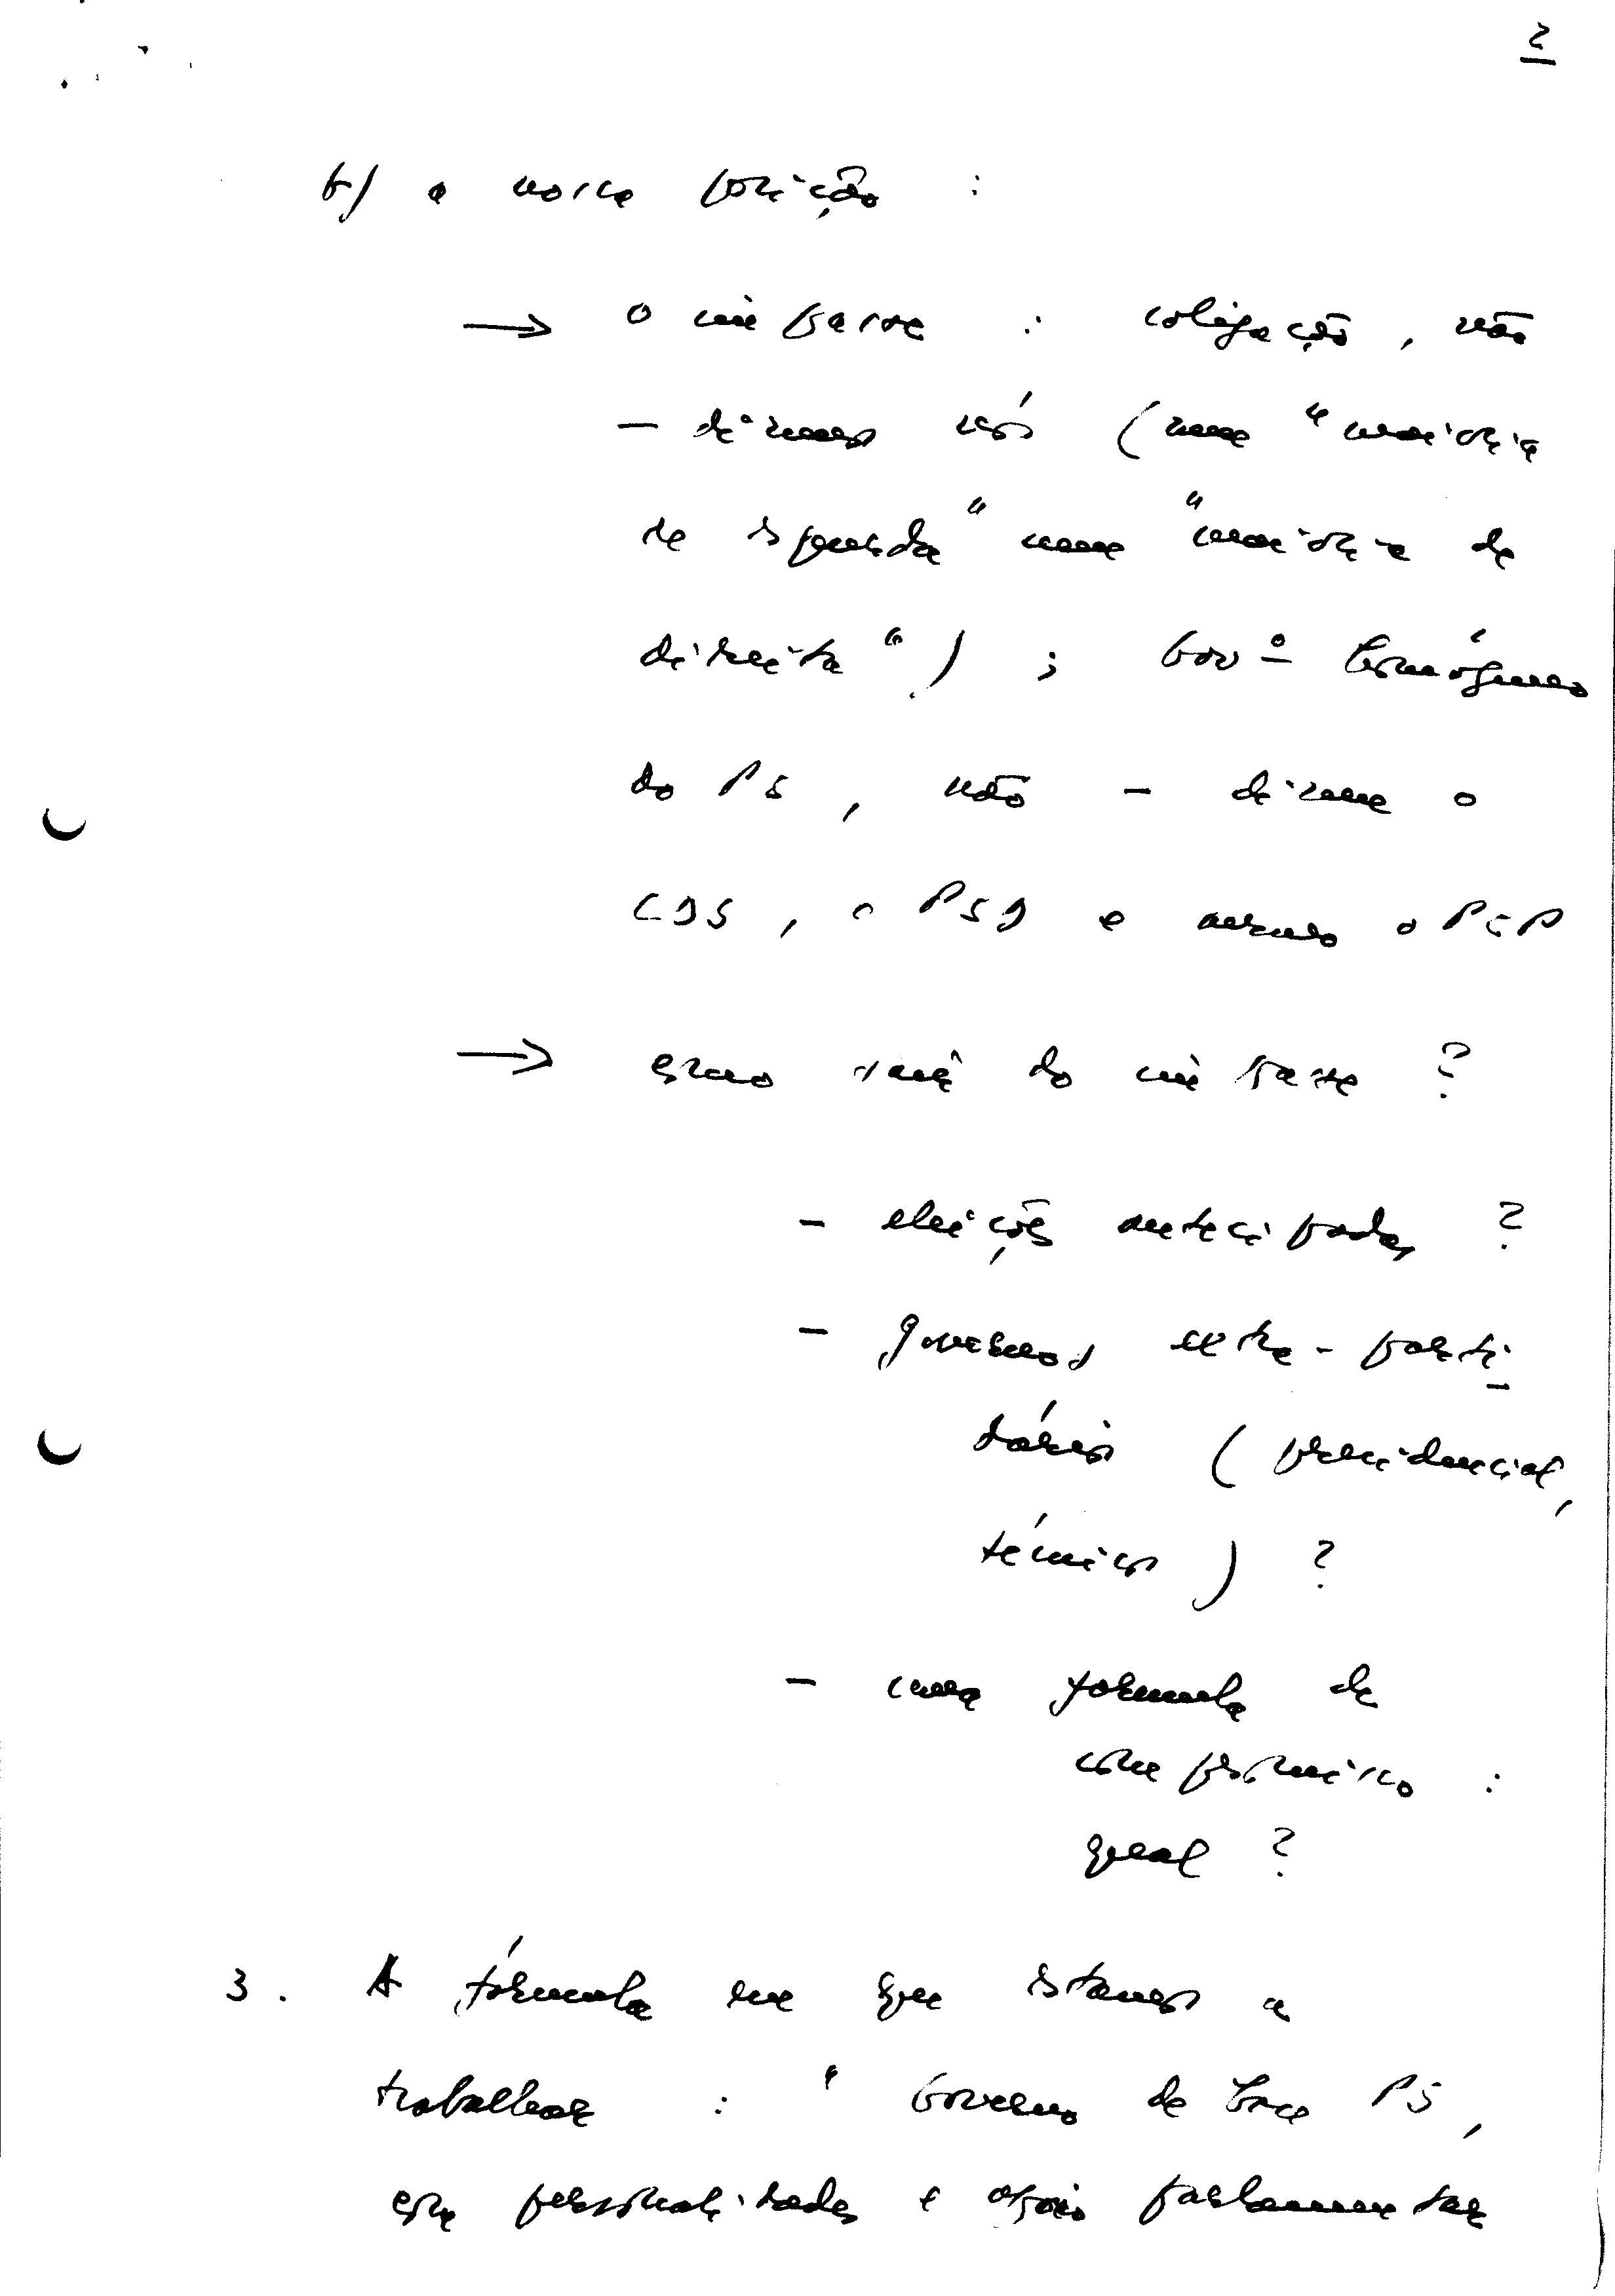 2
b) a nossa posição :
→ o impasse : coligação, não
- dizemos nós (nem "maioria
de esquerda" nem "maioria de
direita") ; Govº homogéneo
do PS, não - dizem o
CDS, o PSD e mesmo o PCP
→ como sair do impasse ?
- eleições antecipadas ?
- governos extra-parti-
dários (presidencial,
técnico) ?
- uma fórmula de
compromisso :
qual ?
3. A fórmula em que estamos a
trabalhar : " Governo de base PS,
com personalidades e apoio parlamentar